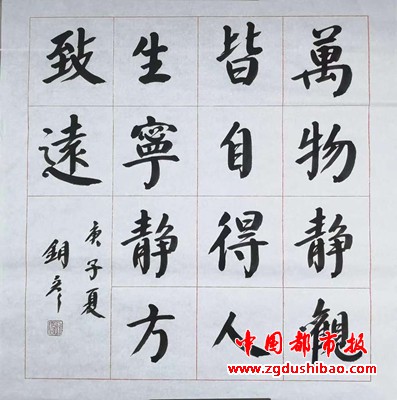 萬物静觀
皆自得人
生寧静方
致遠
庚子夏
钢彦
中国都市报
www.zgdushibao.com